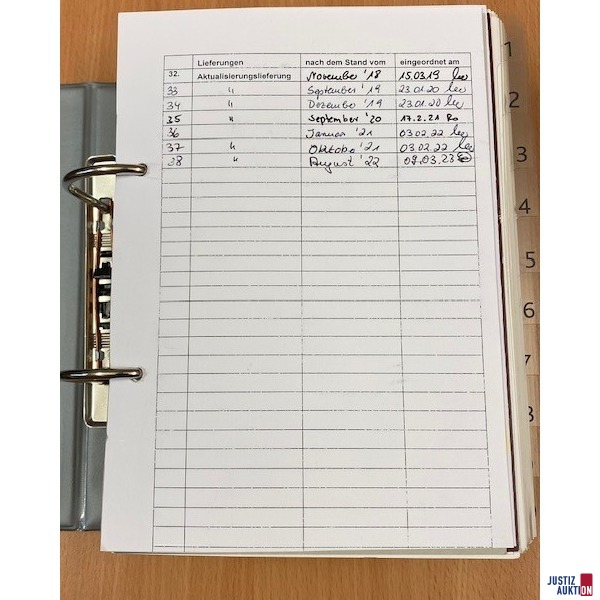 Lieferungen nach dem Stand vom eingeordnet am
32. Aktualisierungslieferung November '18 15.03.19
33 " September '19 23.01.20
34 " Dezember '19 23.01.20
35 " September '20 17.2.21 Ro
36 Januar '21 03.02.22
37 " Oktober '21 03.02.22
38 " August '22 09.03.23
1
2
3
4
5
6
7
8
JUSTIZ
AUKTION